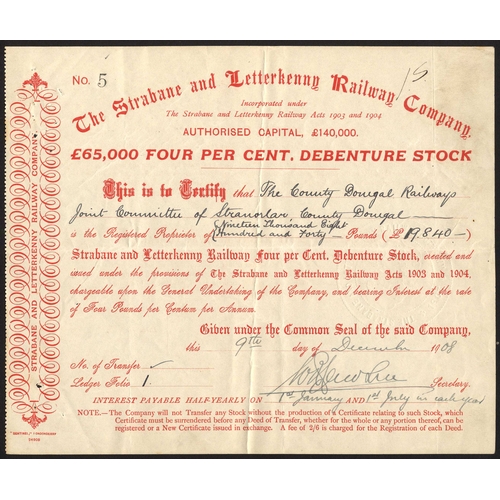 No. 5
The Strabane and Letterkenny Railway Company,
Incorporated under
The Strabane and Letterkenny Railway Acts 1903 and 1904
AUTHORISED CAPITAL, £140,000.
£65,000 FOUR PER CENT. DEBENTURE STOCK
This is to Certify that The County Donegal Railways
Joint Committee of Stranorlar, County Donegal
is the Registered Proprietor of Nineteen Thousand Eight
Hundred and Forty Pounds (£ 19,840 —)
Strabane and Letterkenny Railway Four per Cent. Debenture Stock, created and
issued under the provisions of The Strabane and Letterkenny Railway Acts 1903 and 1904,
chargeable upon the General Undertaking of the Company, and bearing Interest at the rate
of Four Pounds per Centum per Annum.
Given under the Common Seal of the said Company,
this 9th day of December 1908
No. of Transfer
Ledger Folio 1.
Secretary.
INTEREST PAYABLE HALF-YEARLY ON 1st January and 1st July in each year
NOTE.—The Company will not Transfer any Stock without the production of a Certificate relating to such Stock, which
Certificate must be surrendered before any Deed of Transfer, whether for the whole or any portion thereof, can be
registered or a New Certificate issued in exchange. A fee of 2/6 is charged for the Registration of each Deed.
STRABANE AND LETTERKENNY RAILWAY COMPANY.